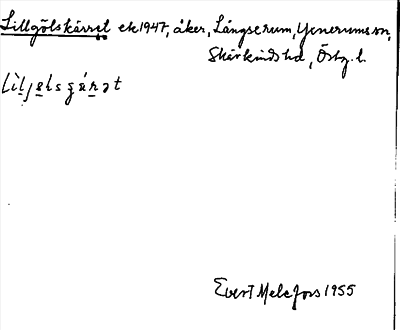 Lillgölskärret ek 1947, åker, Långserum, Yxnerums sn,
Skärkinds hd, Östg. l.
Lìljelsgárət
Evert Melefors 1955